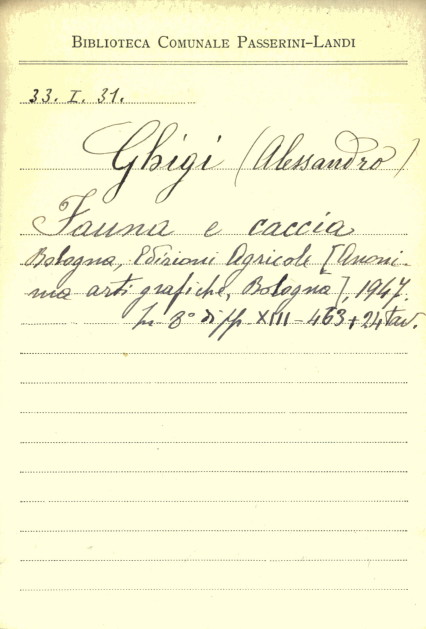 BIBLIOTECA COMUNALE PASSERINI-LANDI
33. I. 31.
Ghigi (Alessandro)
Fauna e caccia
Bologna, Edizioni Agricole [Anoni-
ma arti grafiche, Bologna], 1947.
In 8° di pp XIII - 463 + 24 tav.